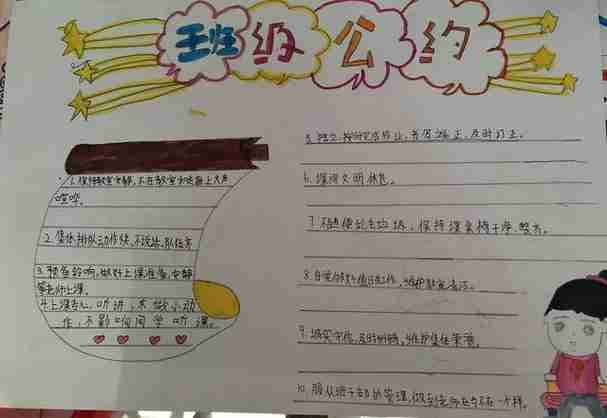 班级公约
1.保持教室安静,不在教室和走廊上大声
喧哗。
2.集体排队动作快,不说话,队伍齐
3.预备铃响,做好上课准备,安静
等老师上课。
4.上课专心听讲,不做小动
作,不影响同学听课。
5.独立按时完成作业,书写端正,及时订正。
6.课间文明休息。
7.不随便乱丢垃圾,保持课桌椅干净、整齐。
8.自觉做好值日工作,维护教室清洁。
9.诚实守信,及时,维护集体荣誉。
10.服从班干部的管理,做到老师在与不在一个样。